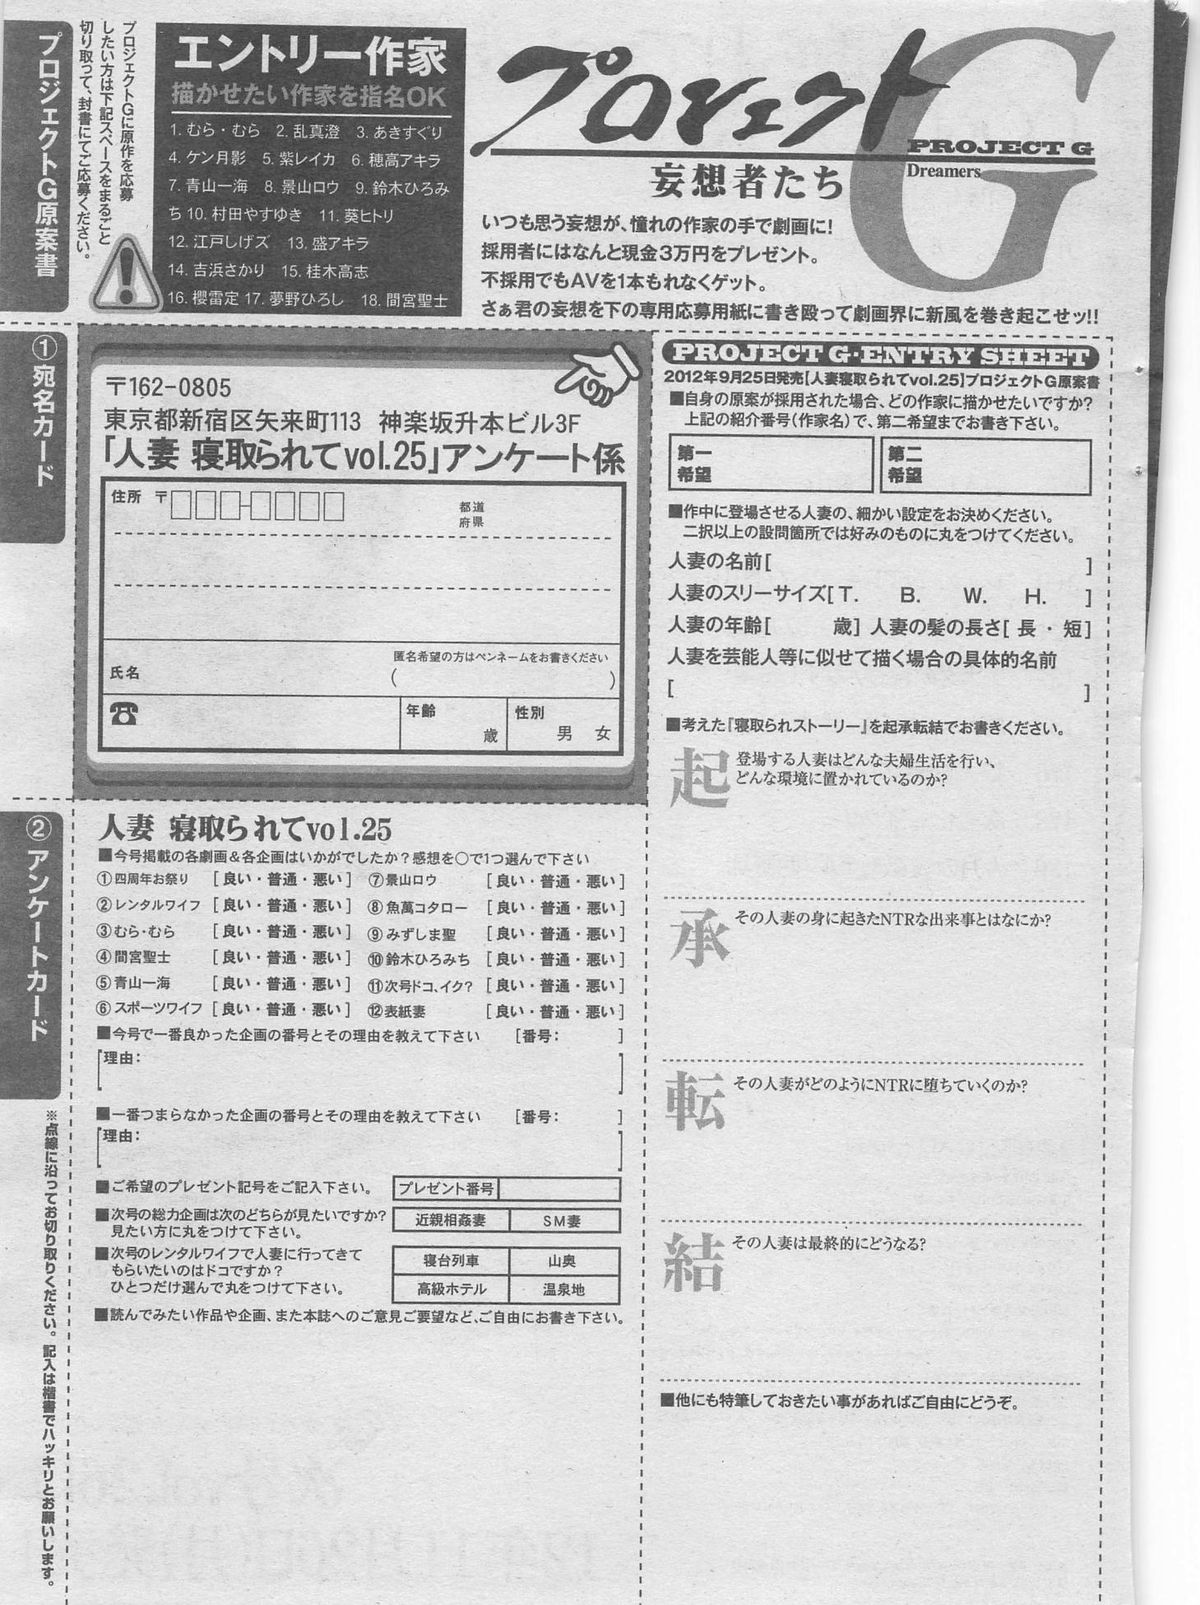 プロジェクトG原案書
プロジェクトGに原作を応募
したい方は下記スペースをまるごと
切り取って、封書にてご応募ください。
エントリー作家
描かせたい作家を指名OK
1. むら・むら 2. 乱真澄 3. あきすぐり
4. ケン月影 5. 紫レイカ 6. 穂高アキラ
7. 青山一海 8. 景山ロウ 9. 鈴木ひろみ
ち 10. 村田やすゆき 11. 葵ヒトリ
12. 江戸しげズ 13. 盛アキラ
14. 吉浜さかり 15. 桂木高志
16. 櫻雷定 17. 夢野ひろし 18. 間宮聖士
プロジェクト
G
PROJECT G
Dreamers
妄想者たち
いつも思う妄想が、憧れの作家の手で劇画に!
採用者にはなんと現金3万円をプレゼント。
不採用でもAVを1本もれなくゲット。
さぁ君の妄想を下の専用応募用紙に書き殴って劇画界に新風を巻き起こせッ!!
①宛名カード
〒162-0805
東京都新宿区矢来町113 神楽坂升本ビル3F
「人妻 寝取られてvol.25」アンケート係
住所 〒
都道
府県
匿名希望の方はペンネームをお書きください
氏名
( )
☎
年齢
歳
性別
男 女
②アンケートカード
人妻 寝取られてvol.25
■今号掲載の各劇画&各企画はいかがでしたか?感想を○で1つ選んで下さい
①四周年お祭り [良い・普通・悪い] ⑦景山ロウ [良い・普通・悪い]
②レンタルワイフ [良い・普通・悪い] ⑧魚萬コタロー [良い・普通・悪い]
③むら・むら [良い・普通・悪い] ⑨みずしま聖 [良い・普通・悪い]
④間宮聖士 [良い・普通・悪い] ⑩鈴木ひろみち [良い・普通・悪い]
⑤青山一海 [良い・普通・悪い] ⑪次号ドコ、イク? [良い・普通・悪い]
⑥スポーツワイフ [良い・普通・悪い] ⑫表紙妻 [良い・普通・悪い]
■今号で一番良かった企画の番号とその理由を教えて下さい [番号: ]
[理由: ]
■一番つまらなかった企画の番号とその理由を教えて下さい [番号: ]
[理由: ]
■ご希望のプレゼント記号をご記入下さい。 プレゼント番号
■次号の総力企画は次のどちらが見たいですか?
見たい方に丸をつけて下さい。
近親相姦妻 SM妻
■次号のレンタルワイフで人妻に行ってきて
もらいたいのはドコですか?
ひとつだけ選んで丸をつけて下さい。
寝台列車 山奥
高級ホテル 温泉地
■読んでみたい作品や企画、また本誌へのご意見ご要望など、ご自由にお書き下さい。
※点線に沿ってお切り取りください。記入は楷書でハッキリとお願いします。
PROJECT G・ENTRY SHEET
2012年9月25日発売【人妻寝取られてvol.25】プロジェクトG原案書
■自身の原案が採用された場合、どの作家に描かせたいですか?
上記の紹介番号(作家名)で、第二希望までお書き下さい。
第一
希望
第二
希望
■作中に登場させる人妻の、細かい設定をお決めください。
二択以上の設問箇所では好みのものに丸をつけてください。
人妻の名前[ ]
人妻のスリーサイズ[T. B. W. H. ]
人妻の年齢[ 歳] 人妻の髪の長さ[ 長・短]
人妻を芸能人等に似せて描く場合の具体的名前
[ ]
■考えた『寝取られストーリー』を起承転結でお書きください。
起
登場する人妻はどんな夫婦生活を行い、
どんな環境に置かれているのか?
承
その人妻の身に起きたNTRな出来事とはなにか?
転
その人妻がどのようにNTRに堕ちていくのか?
結
その人妻は最終的にどうなる?
■他にも特筆しておきたい事があればご自由にどうぞ。